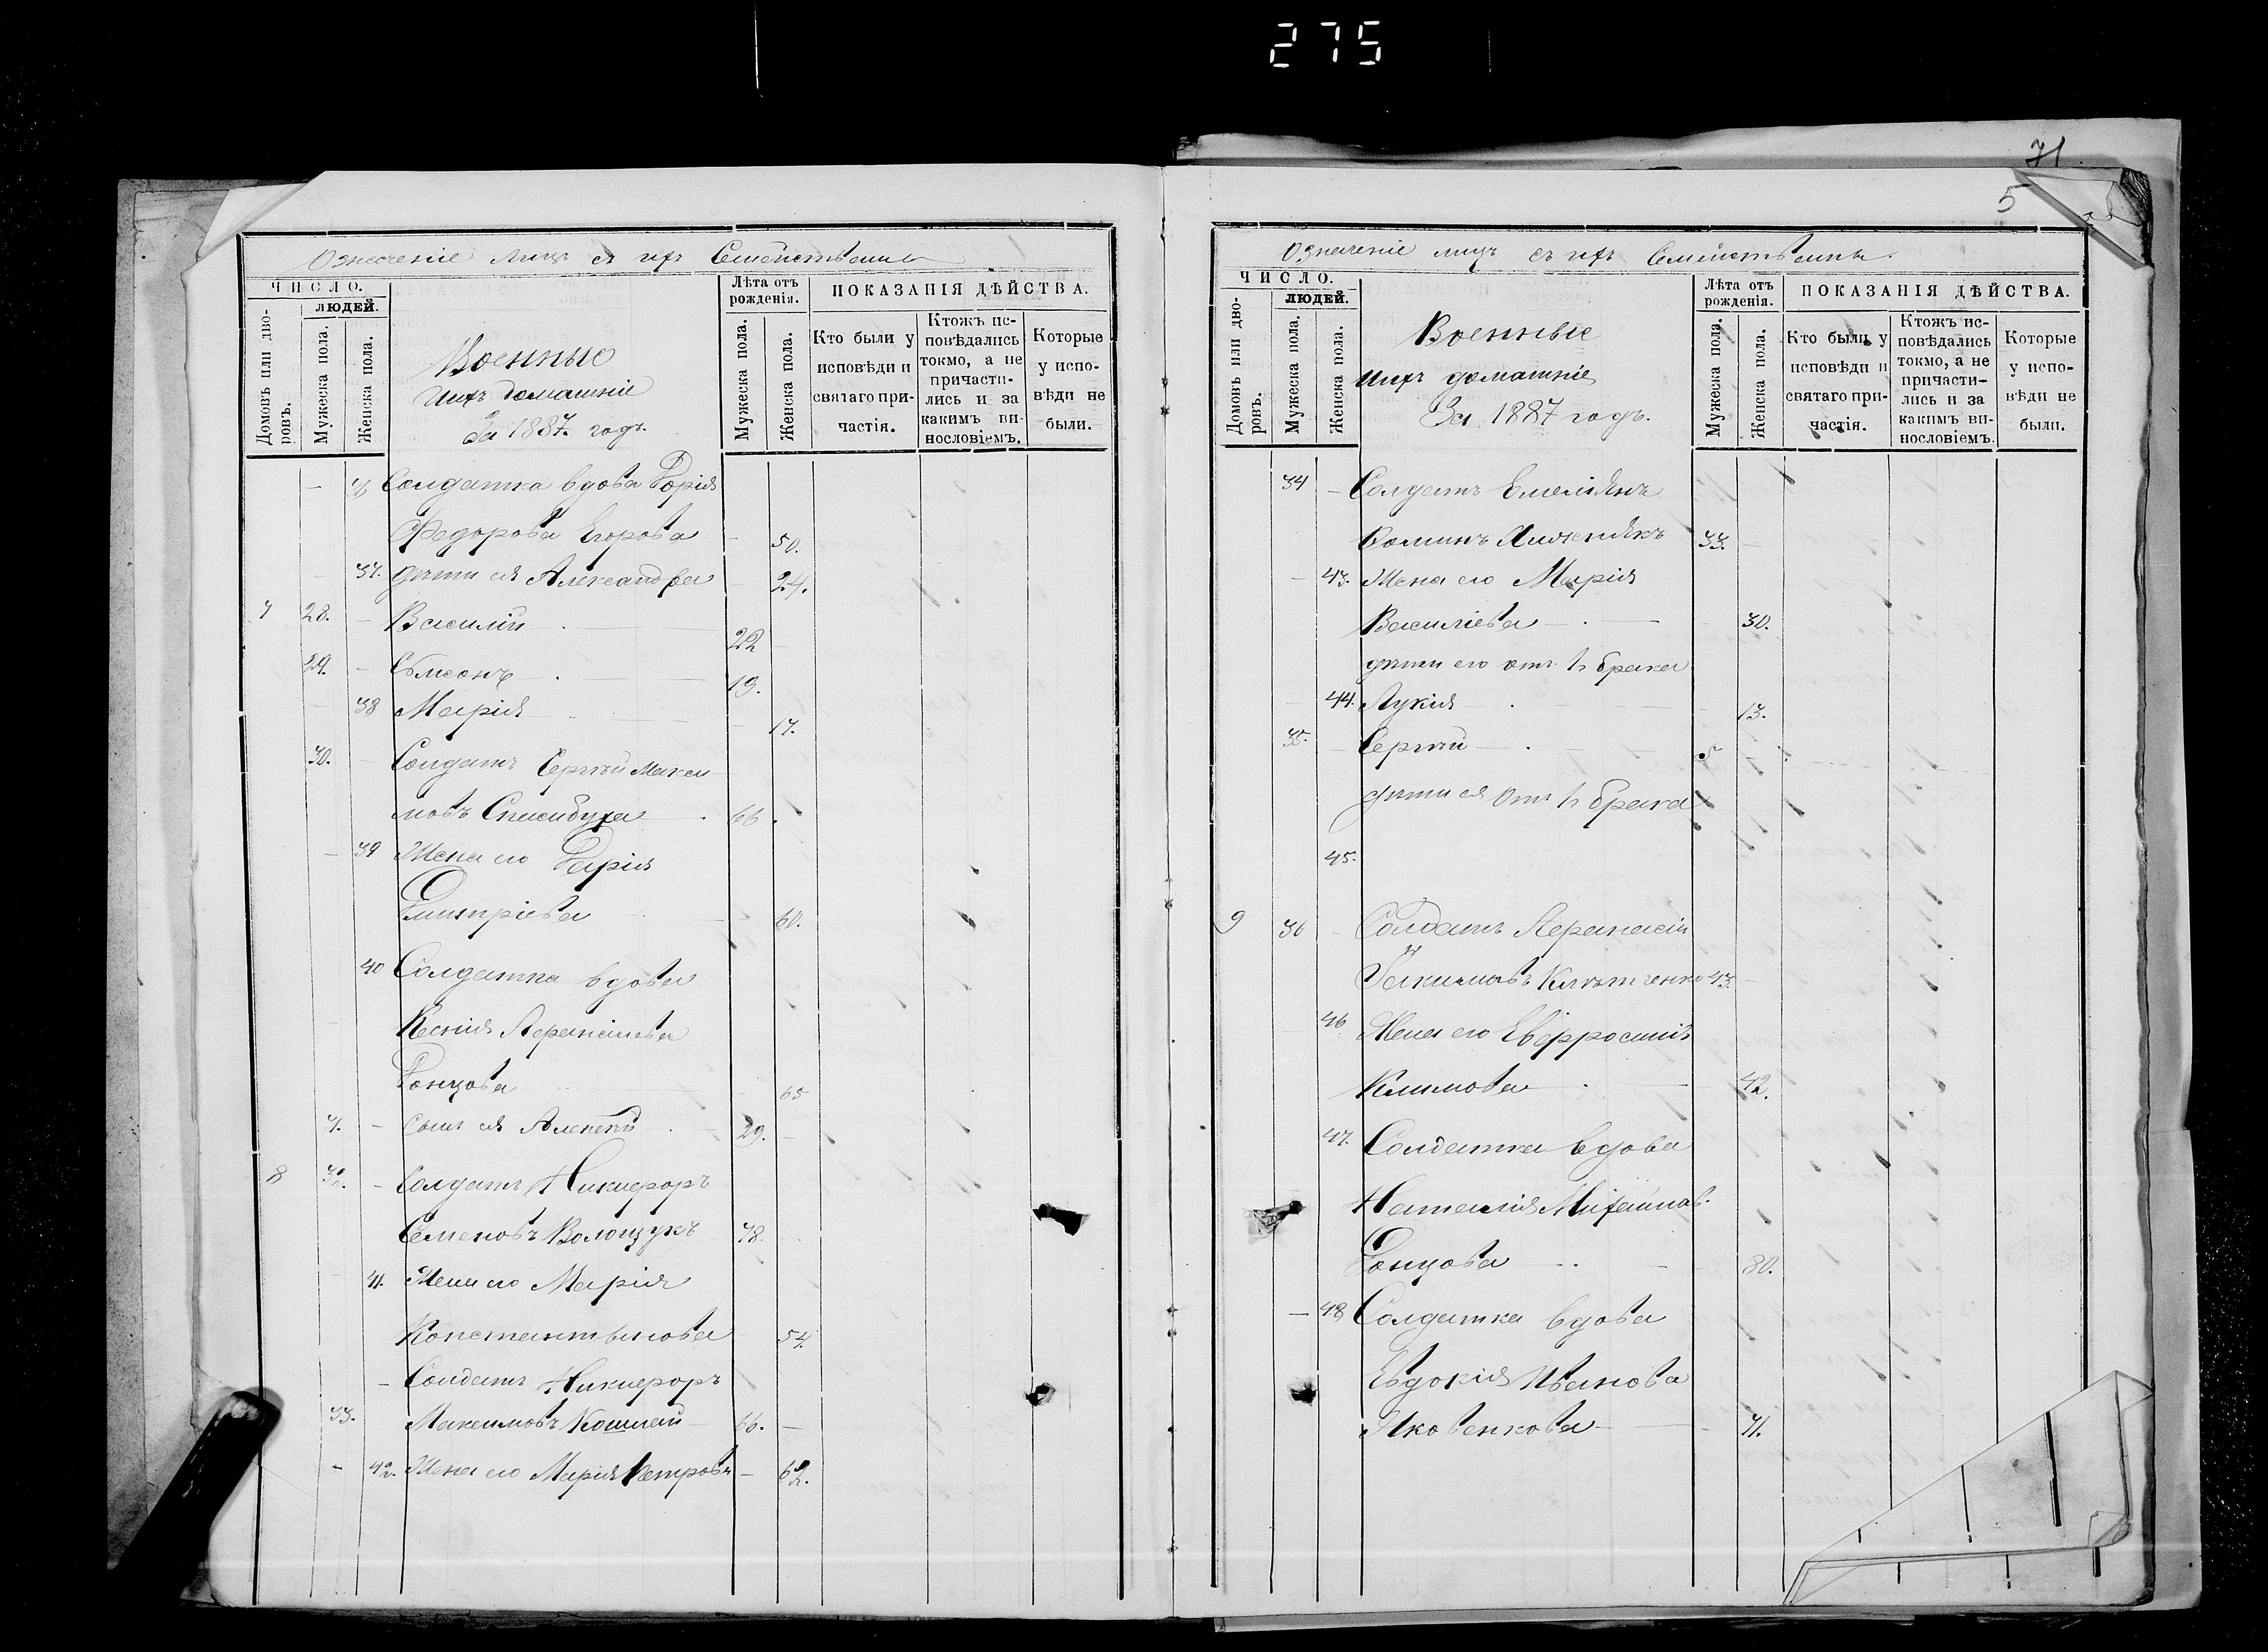 275
71
5
Означеніе лицъ съ ихъ Семействами
ЧИСЛО.
Лѣта отъ рожденія.
ПОКАЗАНІЯ ДѢЙСТВА.
людей.
Домовъ или дворовъ.
Мужеска пола.
Женска пола.
Военные
ихъ домашніе
За 1887. годъ.
Мужеска пола.
Женска пола.
Кто были у исповѣди и святаго причастія.
Ктожъ исповѣдались токмо, а не причастились и за какимъ винословіемъ.
Которые у исповѣди не были.
— 36 Солдатка вдова Дорія
Федорова Егорова — 50.
— 37. дѣти ея Александра — 24.
7 28. — Василій 22 —
29. — Самсонъ 19.
— 38 Марія — 17.
30. — Солдатъ Сергѣй Макси
мовъ Спасибуха 66.
— 39 Жена его Дарія
Димитріева — 60.
40 Солдатка вдова
Ксенія Афанасіева
Донцова 65
— Сынъ ея Алексѣй 29. —
8 32. — Солдатъ Никифоръ
Семеновъ Волощукъ 78.
41. Жена его Марія
Константинова 54.
— Солдатъ Никифоръ
33. Максимовъ Кошлай 66. —
— 42. Жена его Марія Петрова — 62.
Означеніе лицъ съ ихъ Семействами.
ЧИСЛО.
Лѣта отъ рожденія.
ПОКАЗАНІЯ ДѢЙСТВА.
людей.
Домовъ или дворовъ.
Мужеска пола.
Женска пола.
Военные
ихъ домашніе
За 1887 годъ.
Мужеска пола.
Женска пола.
Кто были у исповѣди и святаго причастія.
Ктожъ исповѣдались токмо, а не причастились и за какимъ винословіемъ.
Которые у исповѣди не были.
34 — Солдатъ Емеліянъ
Фоминъ 33. —
— 43. Жена его Марія
Василіева — 30.
дѣти его отъ 1го брака
44. Лукія — 13.
35. — Сергѣй 5 —
дѣти ея отъ 1го брака
45.
9 36 — Солдатъ Афанасій
Іакимовъ 43. —
46 Жена его Евфросинія
Климова 42.
47. Солдатка вдова
Наталія Михаилов.
Донцова — 80.
— 48 Солдатка вдова
Евдокія Иванова
Яковенкова — 71.